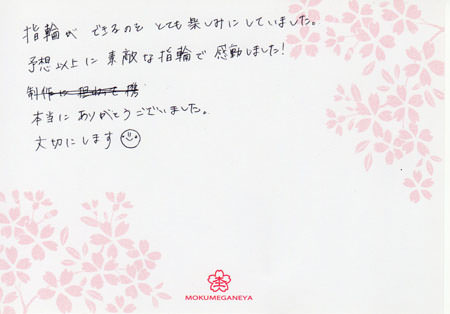 指輪ができるのをとても楽しみにしていました。
予想以上に素敵な指輪で感動しました!
制作
本当にありがとうございました。
大切にします
MOKUMEGANEYA